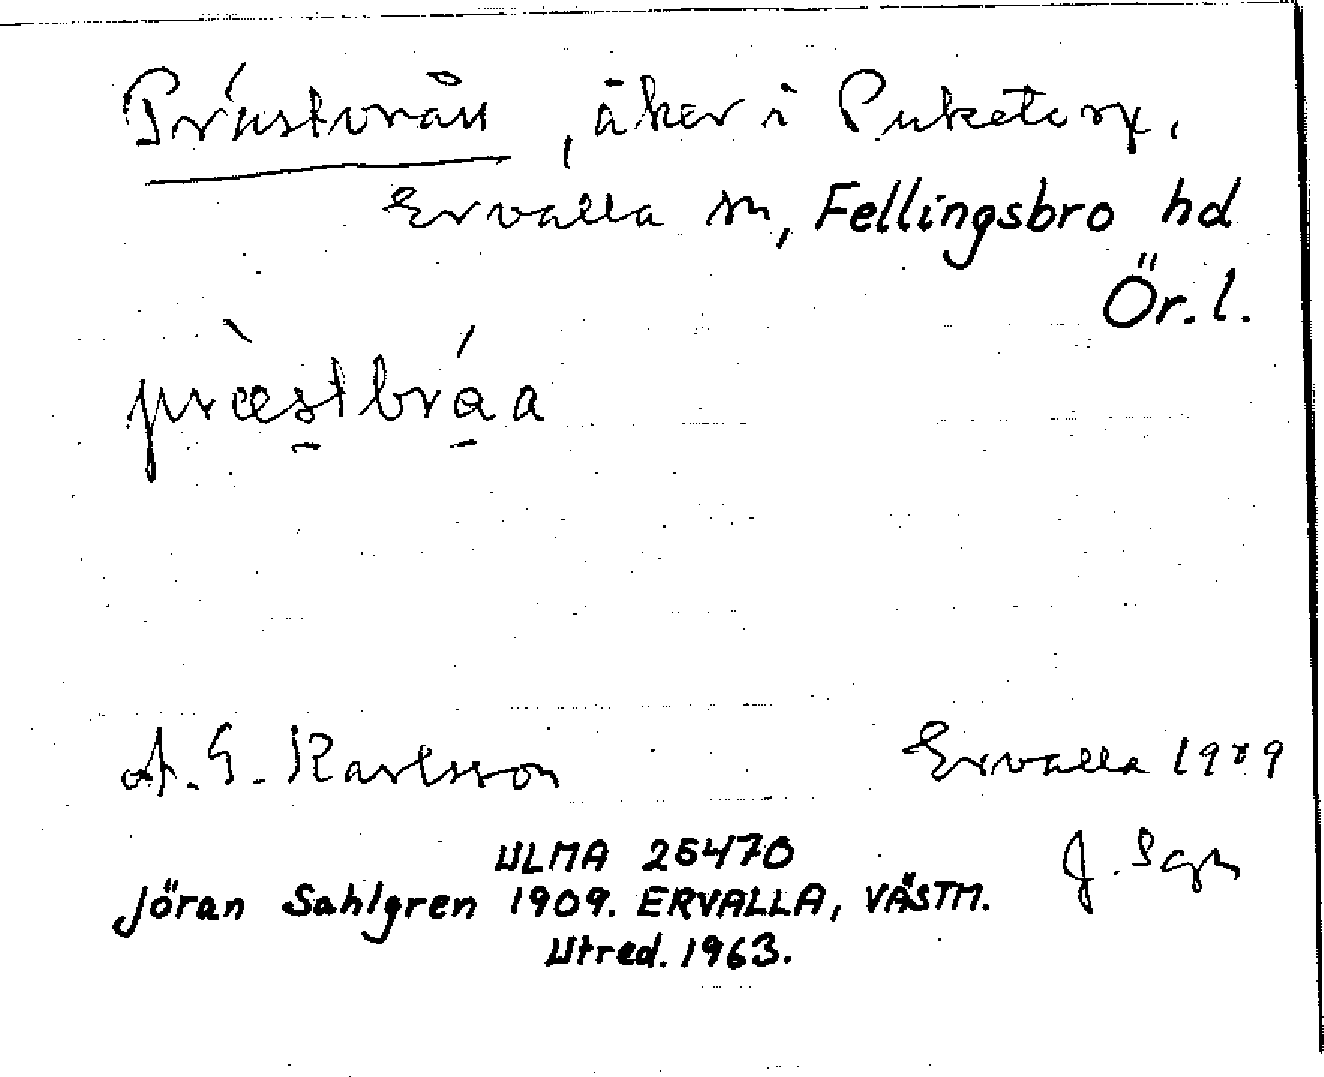 Prästvrån, åker i Puketorp,
Ervalla sn, Fellingsbro hd
Ör. l.
præ̀stbráa
A. G. Karlsson Ervalla 1909
ULMA 25470 J. Sgn
Jöran Sahlgren 1909. ERVALLA, VÄSTM.
Utred. 1963.